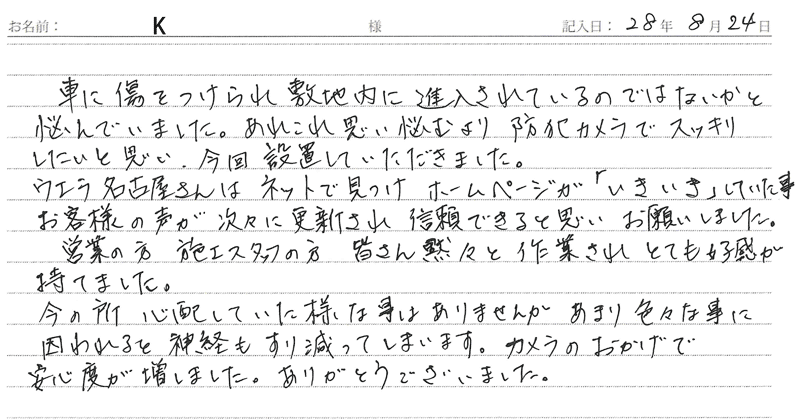 お名前： K 様 記入日： 28年 8月 24日
車に傷をつけられ敷地内に進入されているのではないかと
悩んでいました。あれこれ思い悩むより防犯カメラでスッキリ
したいと思い、今回設置していただきました。
ウエラ名古屋さんはネットで見つけホームページが「いきいき」していた事
お客様の声が次々に更新され信頼できると思いお願いしました。
営業の方 施工スタッフの方 皆さん黙々と作業されとても好感が
持てました。
今の所心配していた様な事はありませんが あまり色々な事に
囚われると神経もすり減ってしまいます。カメラのおかげで
安心度が増しました。ありがとうございました。